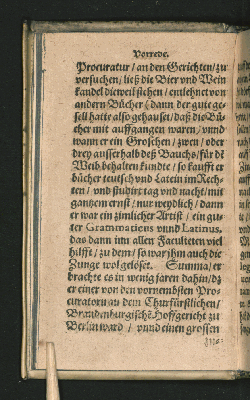 Vorrede.
Procuratur / an den Gerichten / zu
versuchen / ließ die Bier vnd Wein
kandel dieweil stehen / entlehnet von
andern Bücher (dann der gute ge-
sell hatte also gehauset / daß die Bü-
cher mit auffgangen waren / vnnd
wann er ein Groschen / zwen / oder
drey ausserhalb deß Bauchs / für dē
Weib behalten kundte / so kaufft er
bücher teutsch vnd Latein im Rech-
ten / vnd studirt tag vnd nacht / mit
gantzem ernst / nur weydlich / dann
er war ein zimlicher Artist / ein gu-
ter Grammaticus vnnd Latinus,
das dann inn allen Faculteten viel
hilfft / zu dem / so war jhm auch die
Zunge wol gelöset. Summa / er
brachte es in wenig jaren dahin / dz
er einer von den vornembsten Pro-
curatorn an dem Churfürstlichen /
Brandenburgischē Hoffgericht zu
Berlin ward / vnnd einen grossen